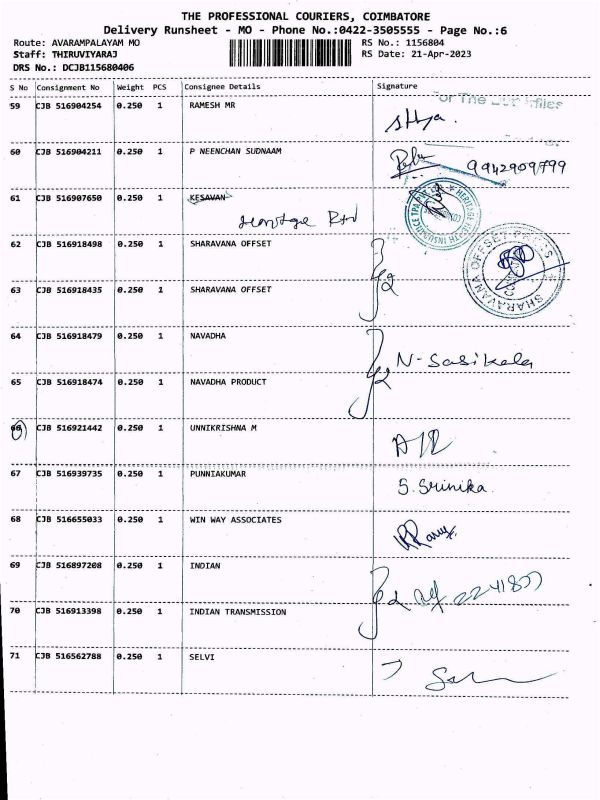 THE PROFESSIONAL COURIERS, COIMBATORE
Delivery Runsheet - MO - Phone No.:0422-3505555 - Page No.:6
Route: AVARAMPALAYAM MO
RS No.: 1156804
Staff: THIRUVIYARAJ
RS Date: 21-Apr-2023
DRS No.: DCJB115680406
S No Consignment No Weight PCS Consignee Details Signature
59 CJB 516904254 0.250 1 RAMESH MR
60 CJB 516904211 0.250 1 P NEENCHAN SUDNAAM 9942909799
61 CJB 516907650 0.250 1 KESAVAN
62 CJB 516918498 0.250 1 SHARAVANA OFFSET
SHARAVANA OFFSET PRESS
63 CJB 516918435 0.250 1 SHARAVANA OFFSET
64 CJB 516918479 0.250 1 NAVADHA N- Sasikala
65 CJB 516918474 0.250 1 NAVADHA PRODUCT
66 CJB 516921442 0.250 1 UNNIKRISHNA M
67 CJB 516939735 0.250 1 PUNNIAKUMAR S. Srinika
68 CJB 516655033 0.250 1 WIN WAY ASSOCIATES
69 CJB 516897208 0.250 1 INDIAN
70 CJB 516913398 0.250 1 INDIAN TRANSMISSION
71 CJB 516562788 0.250 1 SELVI